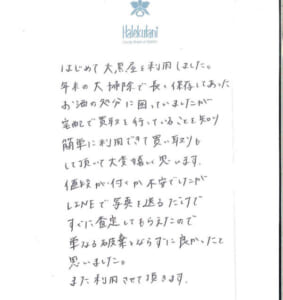 Halekulani
はじめて大黒屋を利用しました。
年末の大掃除で長く保存してあった
お酒の処分に困っていましたが
宅配で買取を行っていることを知り
簡単に利用できて買い取りも
して頂いて大変嬉しく思います。
値段が付くか不安でしたが
LINEで写真を送るだけで
すぐに査定してもらえたので
単なる破棄とならずに良かったと
思いました。
また利用させて頂きます。